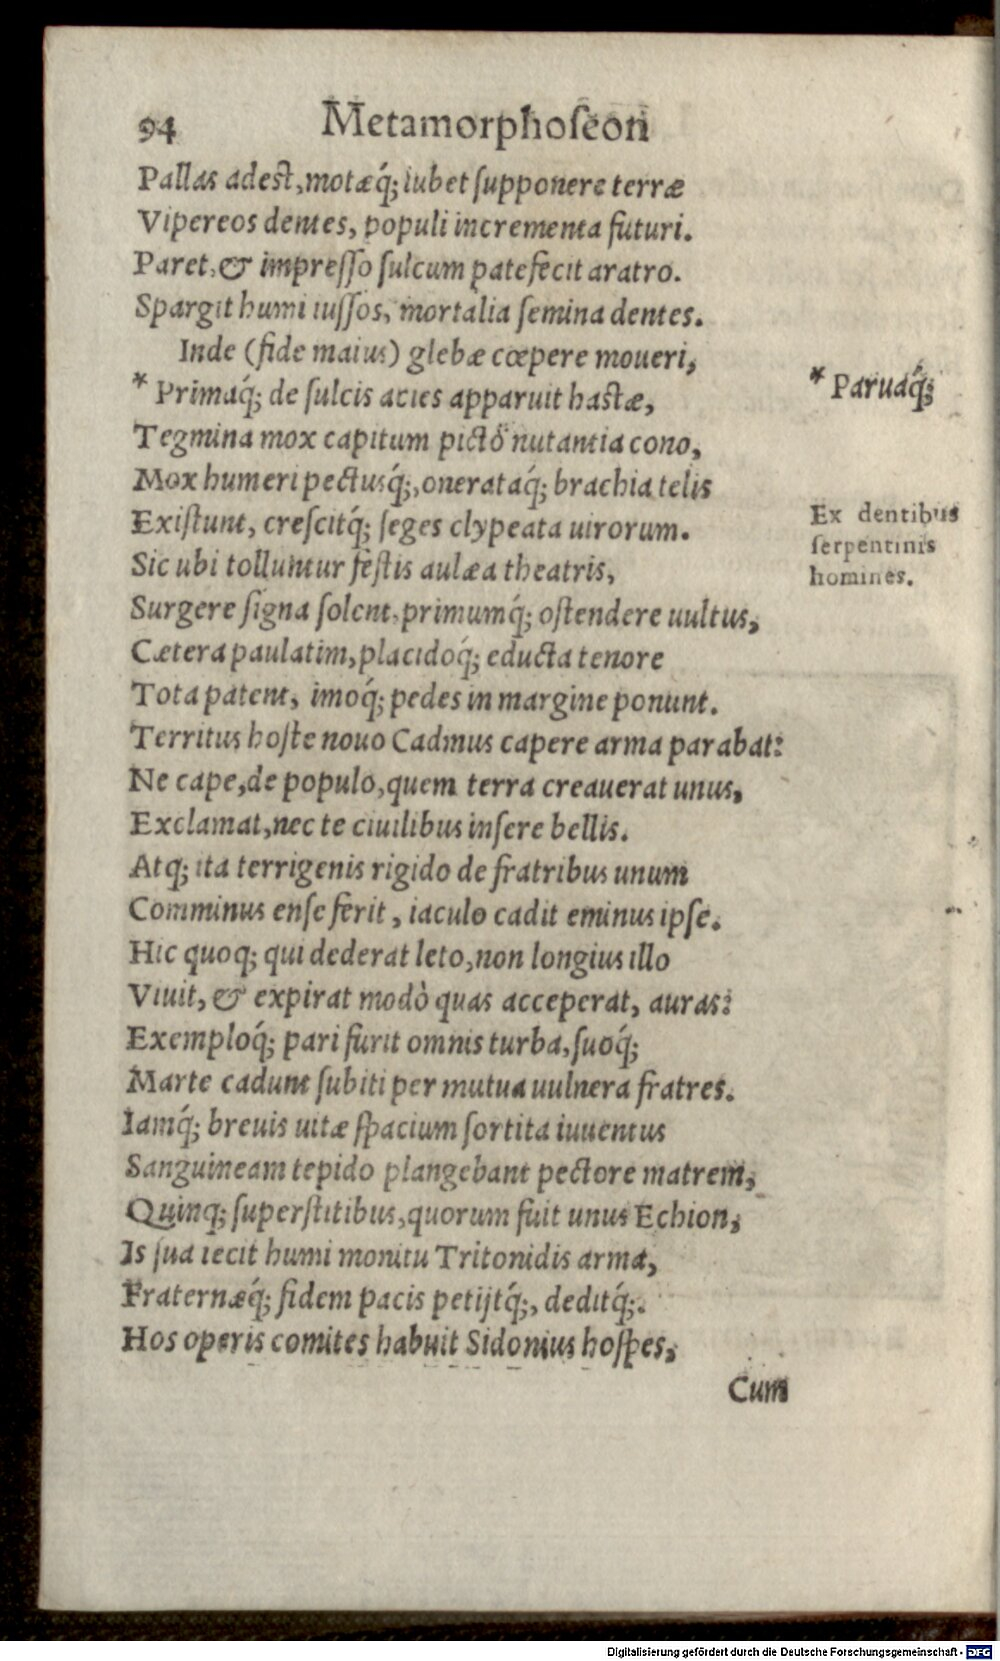 94 Metamorphoſeon
Pallas adest, motæq́; iubet ſupponere terræ
Vipereos dentes, populi incrementa futuri.
Paret, & impreſſo ſulcum patefecit aratro.
Spargit humi iuſſos, mortalia ſemina dentes.
Inde (fide maius) glebæ cœpere moueri,
* Primaq́; de ſulcis acies apparuit hastæ,
* Paruaq́;
Tegmina mox capitum picto nutantia cono,
Mox humeri pectusq́;, onerataq́; brachia telis
Exiſtunt, creſcitq́; ſeges clypeata uirorum.
Ex dentibus
ſerpentinis
homines.
Sic ubi tolluntur feſtis aulæa theatris,
Surgere ſigna ſolent, primumq́; oſtendere uultus,
Cætera paulatim, placidoq́; educta tenore
Tota patent, imoq́; pedes in margine ponunt.
Territus hoſte nouo Cadmus capere arma parabat:
Ne cape, de populo, quem terra creauerat unus,
Exclamat, nec te ciuilibus inſere bellis.
Atq; ita terrigenis rigido de fratribus unum
Comminus enſe ferit, iaculo cadit eminus ipſe.
Hic quoq; qui dederat leto, non longius illo
Viuit, & expirat modò quas acceperat, auras:
Exemploq́; pari furit omnis turba, ſuoq́;
Marte cadunt ſubiti per mutua uulnera fratres.
Iamq́; breuis uitæ ſpacium ſortita iuuentus
Sanguineam tepido plangebant pectore matrem,
Quinq; ſuperſtitibus, quorum fuit unus Echion,
Is ſua iecit humi monitu Tritonidis arma,
Fraternæq́; fidem pacis petijtq́;, deditq́;.
Hos operis comites habuit Sidonius hoſpes,
Cum
Digitalisierung gefördert durch die Deutsche Forschungsgemeinschaft - DFG